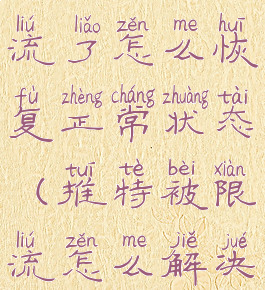 liú liǎo zěn me huī
流了怎么恢
fù zhèng cháng zhuàng tài
复正常状态
tuī tè bèi xiàn
（推特被限
liú zěn me jiě jué
流怎么解决